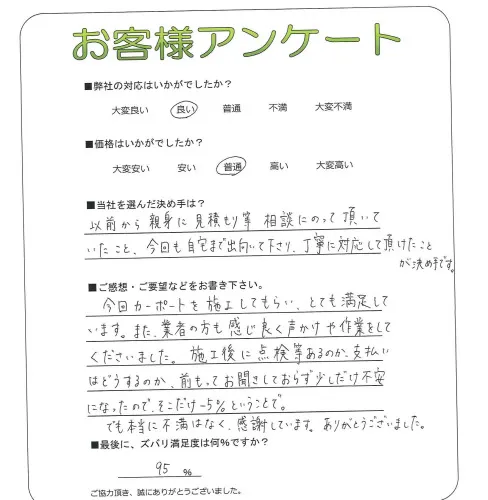 お客様アンケート
■弊社の対応はいかがでしたか？
大変良い 良い 普通 不満 大変不満
■価格はいかがでしたか？
大変安い 安い 普通 高い 大変高い
■当社を選んだ決め手は？
以前から親身に見積もり等 相談にのって頂いて
いたこと、今回も自宅まで出向いて下さり、丁寧に対応して頂けたこと
が決め手です。
■ご感想・ご要望などをお書き下さい。
今回カーポートを施工してもらい、とても満足して
います。また、業者の方も感じ良く声かけや作業をして
くださいました。施工後に点検等あるのか、支払い
はどうするのか、前もってお聞きしておらず少しだけ不安
になったので、そこだけ-5%ということで。
でも本当に不満はなく、感謝しています。ありがとうございました。
■最後に、ズバリ満足度は何％ですか？
95 %
ご協力頂き、誠にありがとうございました。